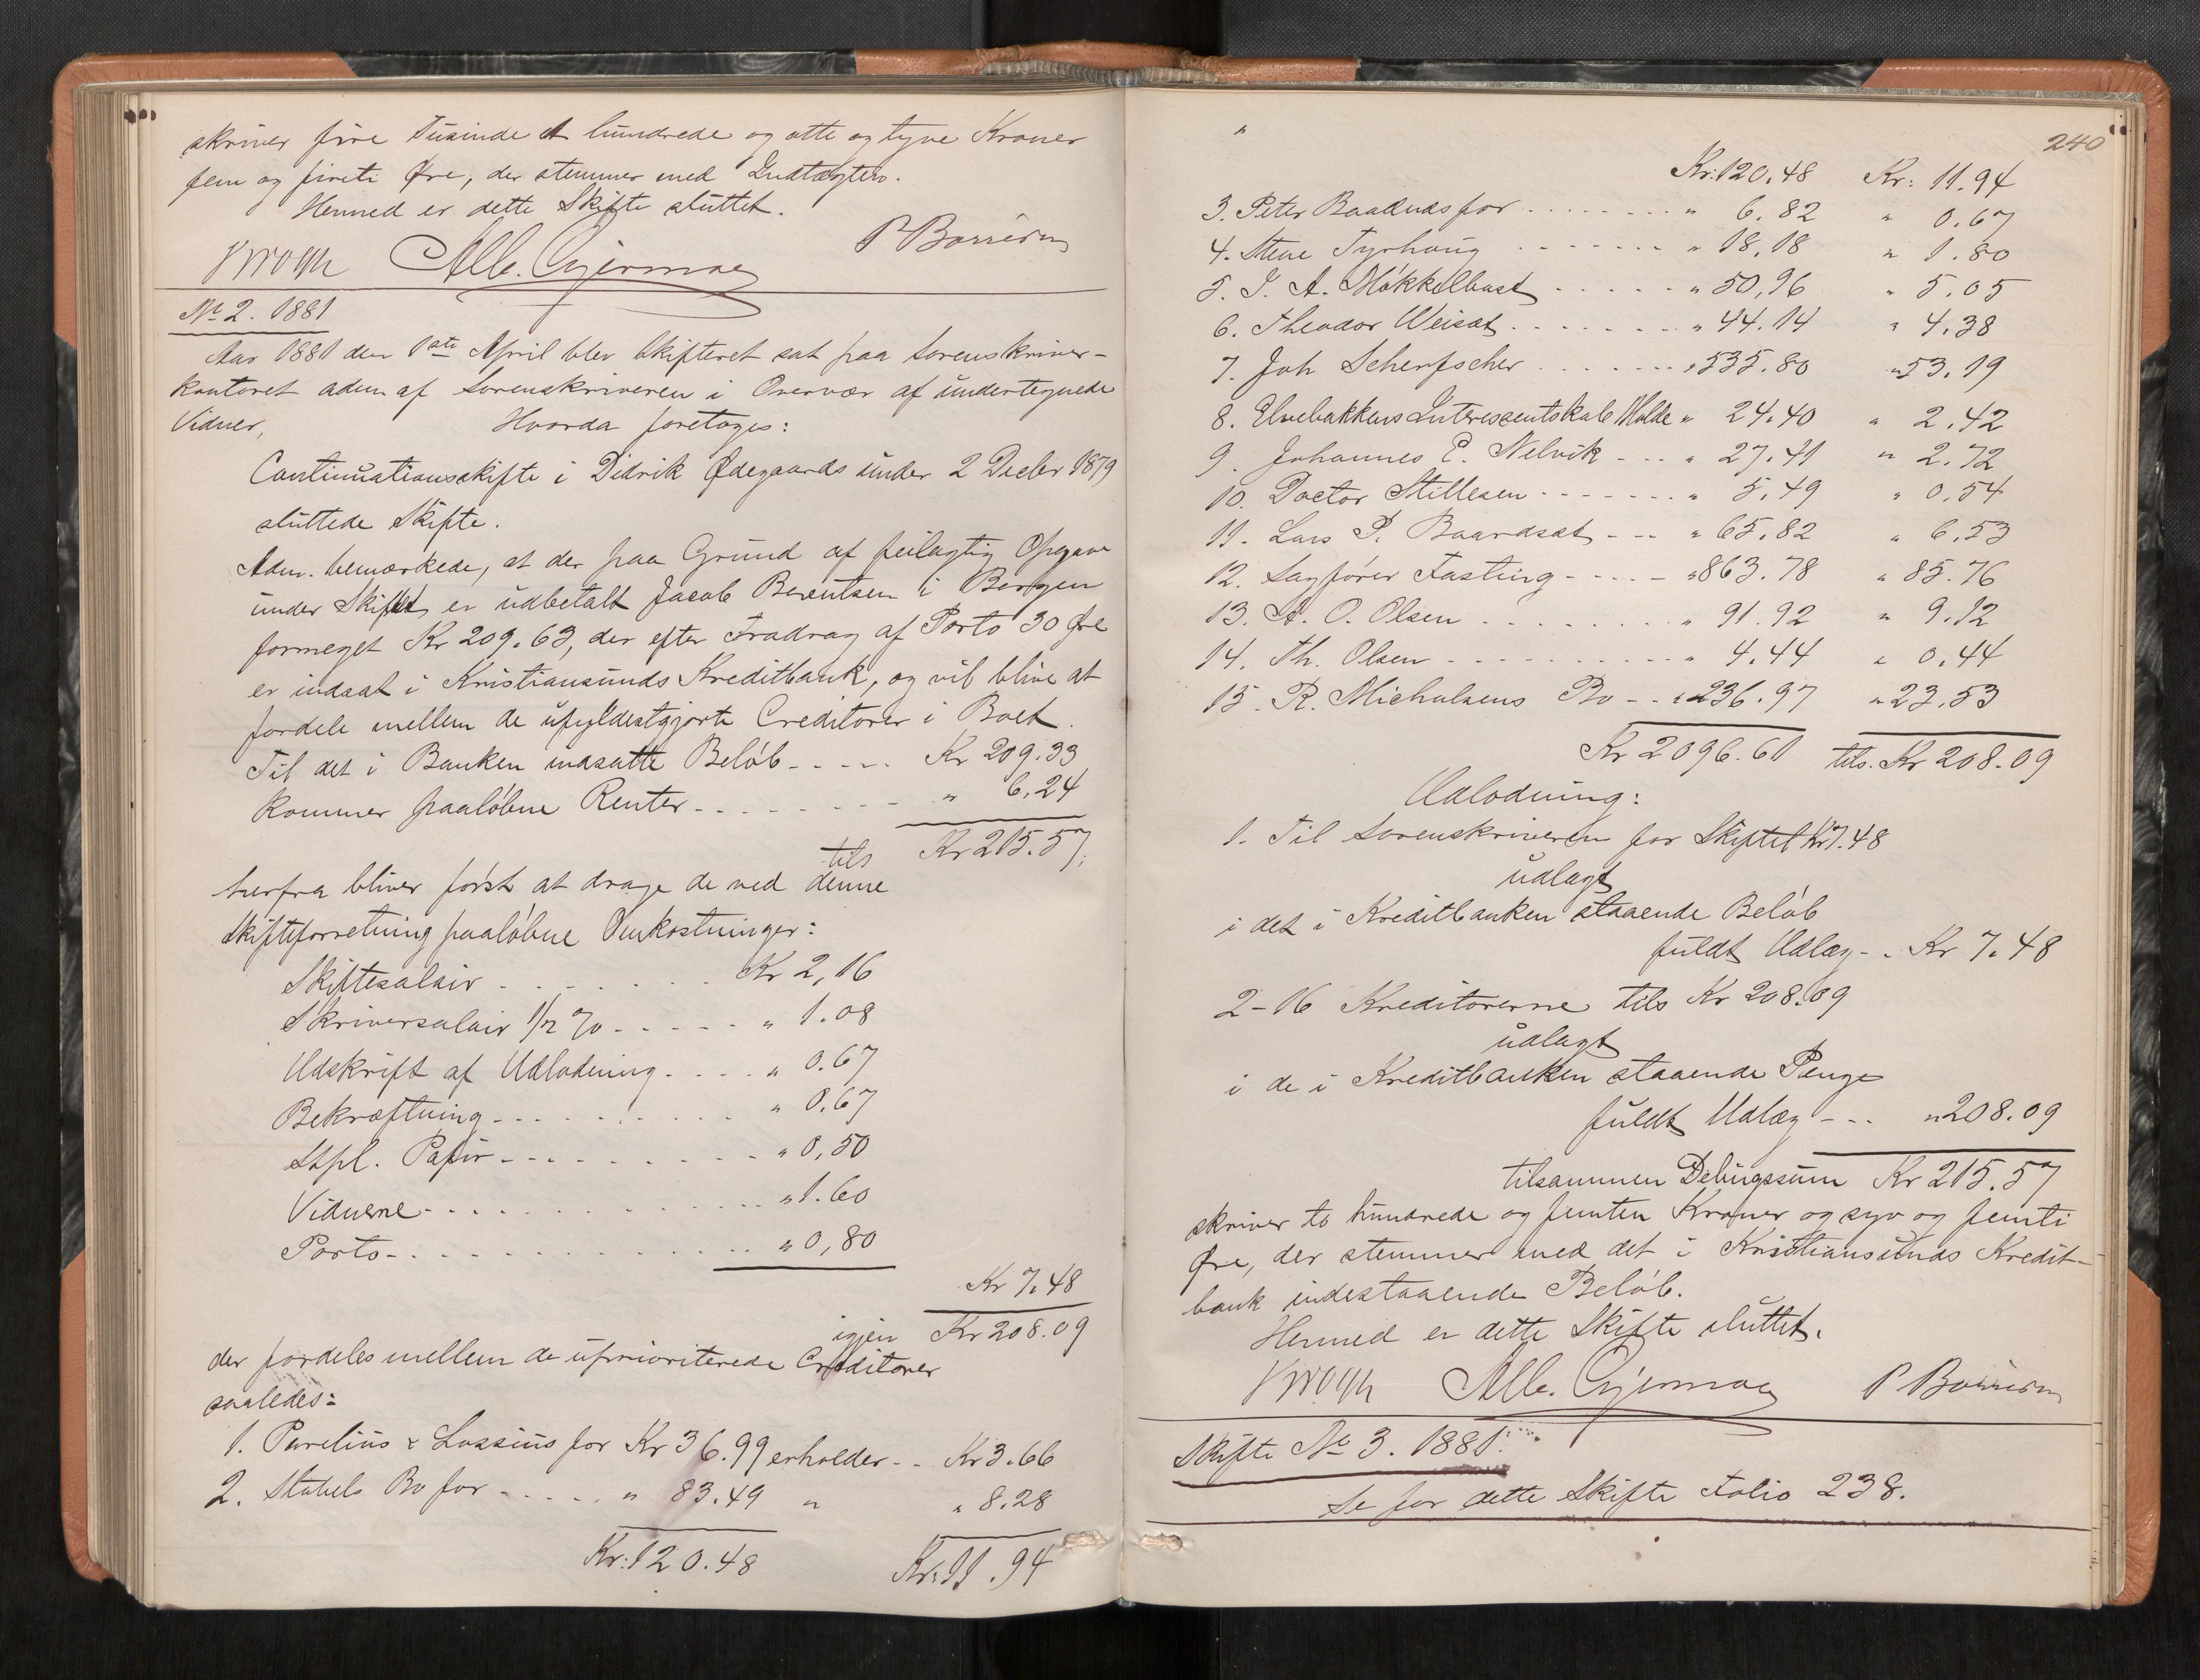 skriver fire Tusinde et hundrede og otte og tyve Kroner
fem og firti Øre, der stemmer med Indtægten.
Hermed er dette Skifte sluttet.
Krogh Alb. Gjørmoe
No 2. 1881
Aar 1881 den 1ste April blev Skifteret sat paa Sorenskriver-
kontoret adm af Sorenskriveren i Overvær af undertegnede
Vidner, Hvorda foretoges:
Continuationsskifte i Didrik Ødegaards under 2 Decbr 1879
sluttede Skifte.
Adm. bemærkede, at der paa Grund af feilagtig Opgave
under Skiftet er udbetalt Jacob Berentsen i Bergen
formeget Kr 209.63, der efter Fradrag af Porto 30 Øre
er indsat i Kristiansunds Kreditbank, og vil blive at
fordele mellem de ufyldestgjorte Creditorer i Boet.
Til det i Banken indsatte Beløb - - - - - Kr 209.33
kommer paaløbne Renter - - - - - - - - - " 6.24
tils Kr 215.57;
herfra bliver først at drage de ved denne
Skifteforretning paaløbne Omkostninger:
Skiftesalair - - - - - - - Kr 2,16
Skriversalair 1/2 % - - - - - " 1.08
Udskrift af Udlodning - - - - " 0.67
Bekræftning - - - - - - - - " 0.67
Stpl. Papir - - - - - - - - - " 0,50
Vidnerne - - - - - - - - - - " 1.60
Porto - - - - - - - - - - - " 0,80
Kr 7.48
igjen Kr 208.09
der fordeles mellem de upriorıterede Creditorer
saaledes:
1. Parelius & Lossius for Kr 36.99 erholder - - Kr 3.66
2. Stabels Bo for - - - - - " 83.49 " " 8.28
Kr: 120.48 Kr: 11.94
240
Kr: 120.48 Kr: 11.94
3. Peter Baadnæs for - - - - - - - - " 6.82 " 0.67
4. Stene Tyrhaug - - - - - - - " 18,18 " 1.80
5. I. A. Møkkelbust - - - - - " 50,96 " 5.05
6. Theodor Weisæt - - - - - - - - " 44.14 " 4.38
7. Joh Scherfscher - - - - - - - " 535.80 " 53.19
8. Elvebakkens Interessentskab Molde " 24.40 " 2.42
9. Johannes E. Nelvik - - - " 27.41 " 2.72
10. Doctor Stillesen - - - - - - - " 5.49 " 0.54
11. Lars P. Baardsæt - - - " 65.82 " 6.53
12. Sagfører Fasting - - - - - " 863.78 " 85.76
13. A. O. Olsen - - - - - - - - - " 91.92 " 9.12
14. Th. Olsen - - - - - - - - - - - " 4.44 " 0.44
15. R. Michalsens Bo - - " 236.97 " 23.53
Kr 2096.61 tils. Kr 208.09
Udlodning:
1. Til Sorenskriveren for Skiftet Kr 7.48
udlagt
i det i Kreditbanken staaende Beløb
fuldt Udlæg - - Kr 7.48
2-16 Kreditorerne tils Kr 208.09
udlagt
i de i Kreditbanken staaende Penge
fuldt Udlæg - - - " 208.09
tilsammen Delingssum Kr 215.57
skriver to hundrede og femten Kroner og syv og femti
Øre, der stemmer med det i Kristiansunds Kredit-
bank indestaaende Beløb.
Hermed er dette Skifte sluttet.
Krogh Alb. Gjørmoe
Skifte No 3. 1881.
Se for dette Skifte Folio 238.